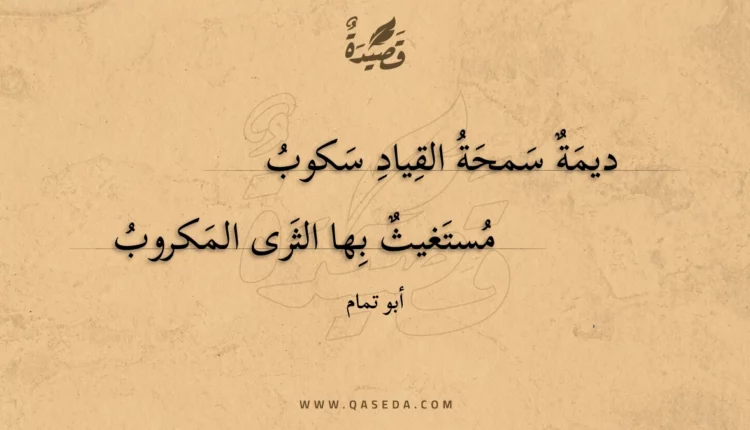 قَصِيْدَةٌ
ديمَةٌ سَمحَةُ القِيادِ سَكوبُ
مُستَغيثٌ بِها الثَرى المَكروبُ
أبو تمام
WWW.QASEDA.COM